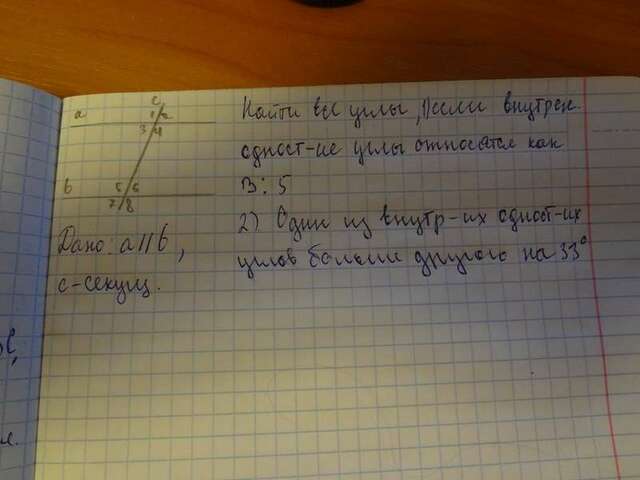 c
a 1 2
3 4
b 5 6
7 8
Дано: a || b,
c-секущ.
Найти все углы, 1) если внутрен.
одност-ие углы относятся как
3 : 5
2) Один из внутр-их одност-их
углов больше другого на 33°